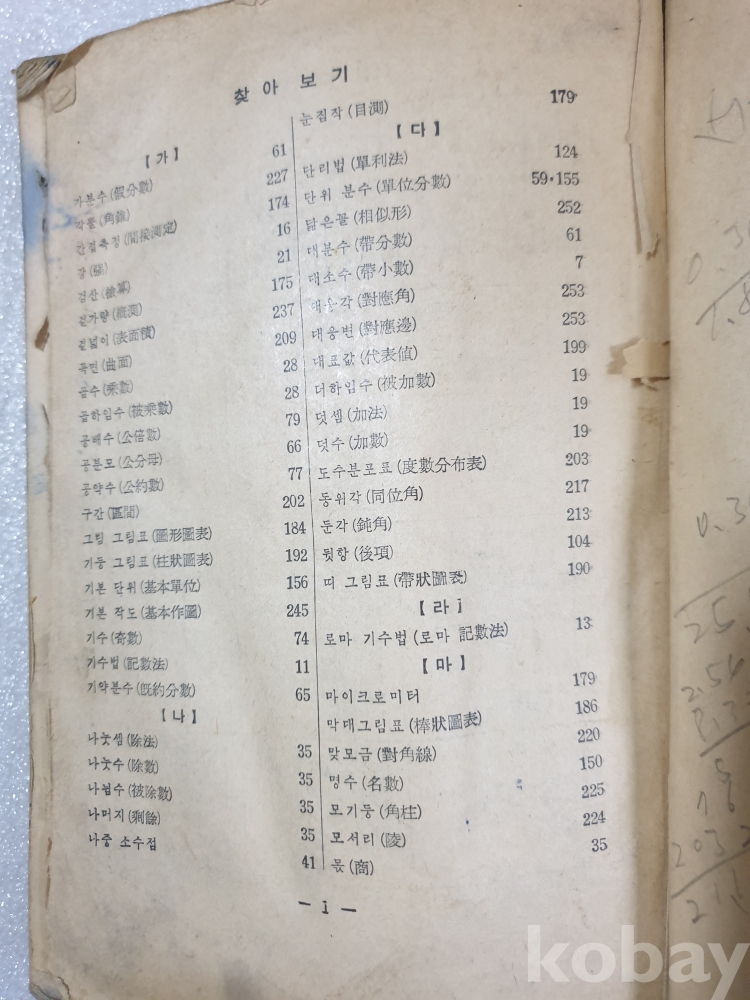 찾아 보기
【가】
가분수(假分數) 61
각뿔(角錐) 227
간접측정(間接測定) 174
강(强) 16
검산(檢算) 21
겉가량(槪測) 175
겉넓이(表面積) 237
곡면(曲面) 209
곱수(乘數) 28
곱하임수(被乘數) 28
공배수(公倍數) 79
공분모(公分母) 66
공약수(公約數) 77
구간(區間) 202
그림 그림표(圖形圖表) 184
기둥 그림표(柱狀圖表) 192
기본 단위(基本單位) 156
기본 작도(基本作圖) 245
기수(奇數) 74
기수법(記數法) 11
기약분수(旣約分數) 65
【나】
나눗셈(除法) 35
나눗수(除數) 35
나뉨수(被除數) 35
나머지(剩餘) 35
나중 소수점 41
눈짐작(目測) 179
【다】
단리법(單利法) 124
단위 분수(單位分數) 59·155
닮은꼴(相似形) 252
대분수(帶分數) 61
대소수(帶小數) 7
대응각(對應角) 253
대응변(對應邊) 253
대표값(代表値) 199
더하임수(被加數) 19
덧셈(加法) 19
덧수(加數) 19
도수분포표(度數分布表) 203
동위각(同位角) 217
둔각(鈍角) 213
뒷항(後項) 104
띠 그림표(帶狀圖表) 190
【라】
로마 기수법(로마 記數法) 13
【마】
마이크로미터 179
막대그림표(棒狀圖表) 186
맞모금(對角線) 220
명수(名數) 150
모기둥(角柱) 225
모서리(陵) 224
몫(商) 35
— i —
kobay